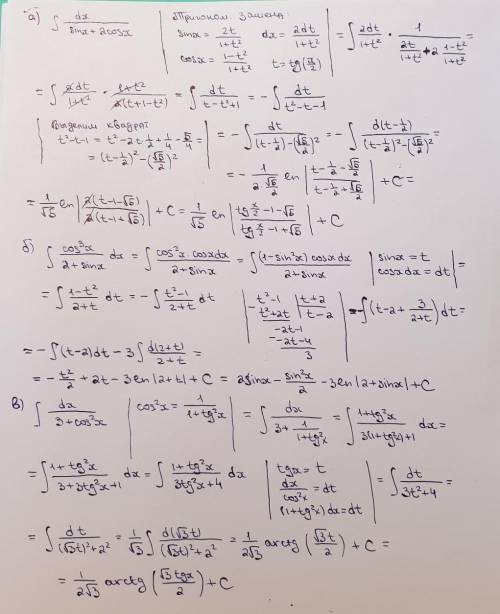 а) ∫ dx/(sinx+2cosx) | Тригоном. замена: sinx = 2t/(1+t²) dx = 2dt/(1+t²) cosx = (1-t²)/(1+t²) t = tg(x/2) | = ∫ 2dt/(1+t²) · 1/(2t/(1+t²) + 2 (1-t²)/(1+t²)) =
= ∫ 2dt/(1+t²) · (1+t²)/(2(t+1-t²)) = ∫ dt/(t-t²+1) = -∫ dt/(t²-t-1)
| Выделим квадрат t²-t-1 = t²-2t·1/2+1/4-5/4 = = (t-1/2)²-(√5/2)² | = -∫ dt/((t-1/2)-(√5/2)²) = -∫ d(t-1/2)/((t-1/2)²-(√5/2)²) =
= -1/(2·√5/2) ln |(t-1/2-√5/2)/(t-1/2+√5/2)| + C =
= 1/√5 ln |2(t-1-√5)/(2(t-1+√5))| + C = 1/√5 ln |(tg x/2 -1-√5)/(tg x/2 -1+√5)| + C
б) ∫ cos³x/(2+sinx) dx = ∫ cos²x cosxdx/(2+sinx) = ∫ (1-sin²x)cosxdx/(2+sinx) | sinx = t cosxdx = dt | =
= ∫ (1-t²)/(2+t) dt = -∫ (t²-1)/(2+t) dt | t²-1 | t+2 t²+2t | t-2 -2t-1 -2t-4 3 | = -∫(t-2+3/(2+t))dt =
= -∫(t-2)dt - 3∫ d(2+t)/(2+t) =
= -t²/2 + 2t - 3ln|2+t| + C = 2sinx - sin²x/2 - 3ln|2+sinx| + C
в) ∫ dx/(3+cos²x) | cos²x = 1/(1+tg²x) | = ∫ dx/(3+1/(1+tg²x)) = ∫ (1+tg²x)/(3(1+tg²x)+1) dx =
= ∫ (1+tg²x)/(3+3tg²x+1) dx = ∫ (1+tg²x)/(3tg²x+4) dx | tgx = t dx/cos²x = dt (1+tg²x)dx = dt | = ∫ dt/(3t²+4) =
= ∫ dt/((√3t)²+2²) = 1/√3 ∫ d(√3t)/((√3t)²+2²) = 1/(2√3) arctg (√3t/2) + C =
= 1/(2√3) arctg (√3 tgx/2) + C